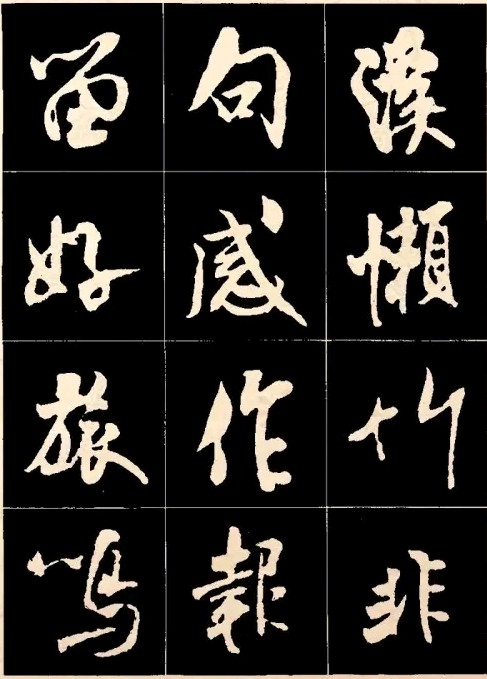 溪懶竹非
句感作報
留好旅鳴